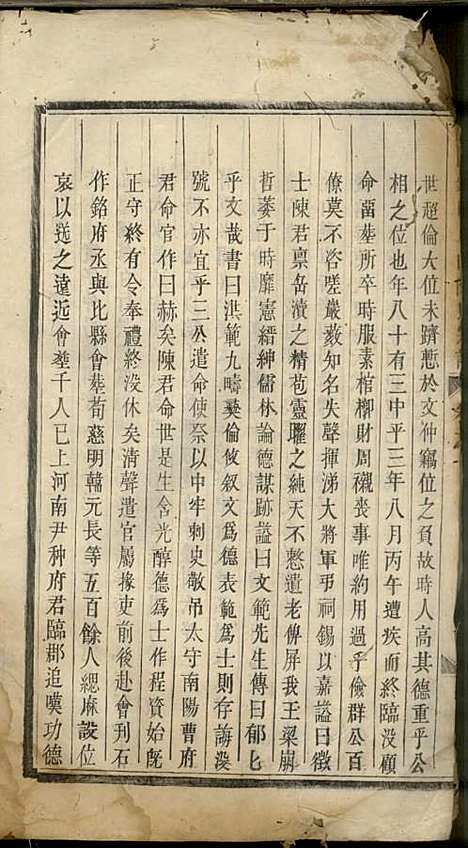 世超倫大位未躋慙於文仲竊位之負故時人高其德重乎公
相之位也年八十有三中平三年八月丙午遭疾而終臨没顧
命畱塟所卒時服素棺槨財周櫬喪事唯約用過乎儉群公百
僚莫不咨嗟巖藪知名失聲揮涕大將軍弔祠錫以嘉謚曰徵
士陳君稟岳瀆之精苞靈曜之純天不憗遺老俾屏我王梁崩
哲萎于時靡憲縉紳儒林論德謀跡謚曰文範先生傳曰郁匕
乎文哉書曰洪範九疇彜倫攸叙文爲德表範爲士則存誨没
號不亦宜乎三公遣命使祭以中牢刺史敬弔太守南陽曹府
君命官作曰赫矣陳君命世是生含光醇德爲士作程資始旣
正守終有令奉禮終没休矣清聲遣官屬掾吏前後赴會刋石
作銘府丞與比縣會塟荀慈明韓元長等五百餘人緦麻設位
哀以送之遠近會塟千人已上河南尹种府君臨郡追嘆功德